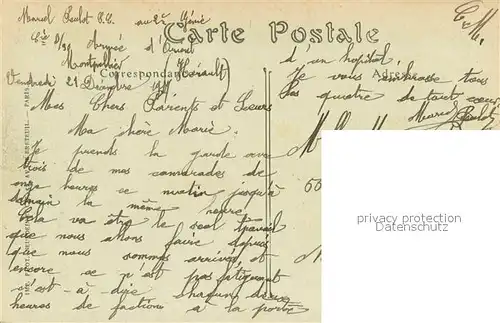 Marcel Paulot S.C. au 2e Génie
Cie D/31 Armée d'Orient
Montpellier Hérault
Vendredi 21 Décembre
C.M.
Carte Postale
Correspondance
Adresse
Mes Chers Parents et Sœurs
Ma chère Marie,
Je prends la garde avec
trois de mes camarades de
onze heures ce matin jusqu'à
demain la même heure.
Cela va être le seul travail
que nous allons faire depuis
que nous sommes arrivés, et
encore ce n'est pas fatiguant
c'est-à-dire chacun deux
heures de factions à la porte
d'un hopital.
Je vous embrasse tous
les quatre de tout cœur
Marcel Paulot
M
60
privacy protection
Datenschutz